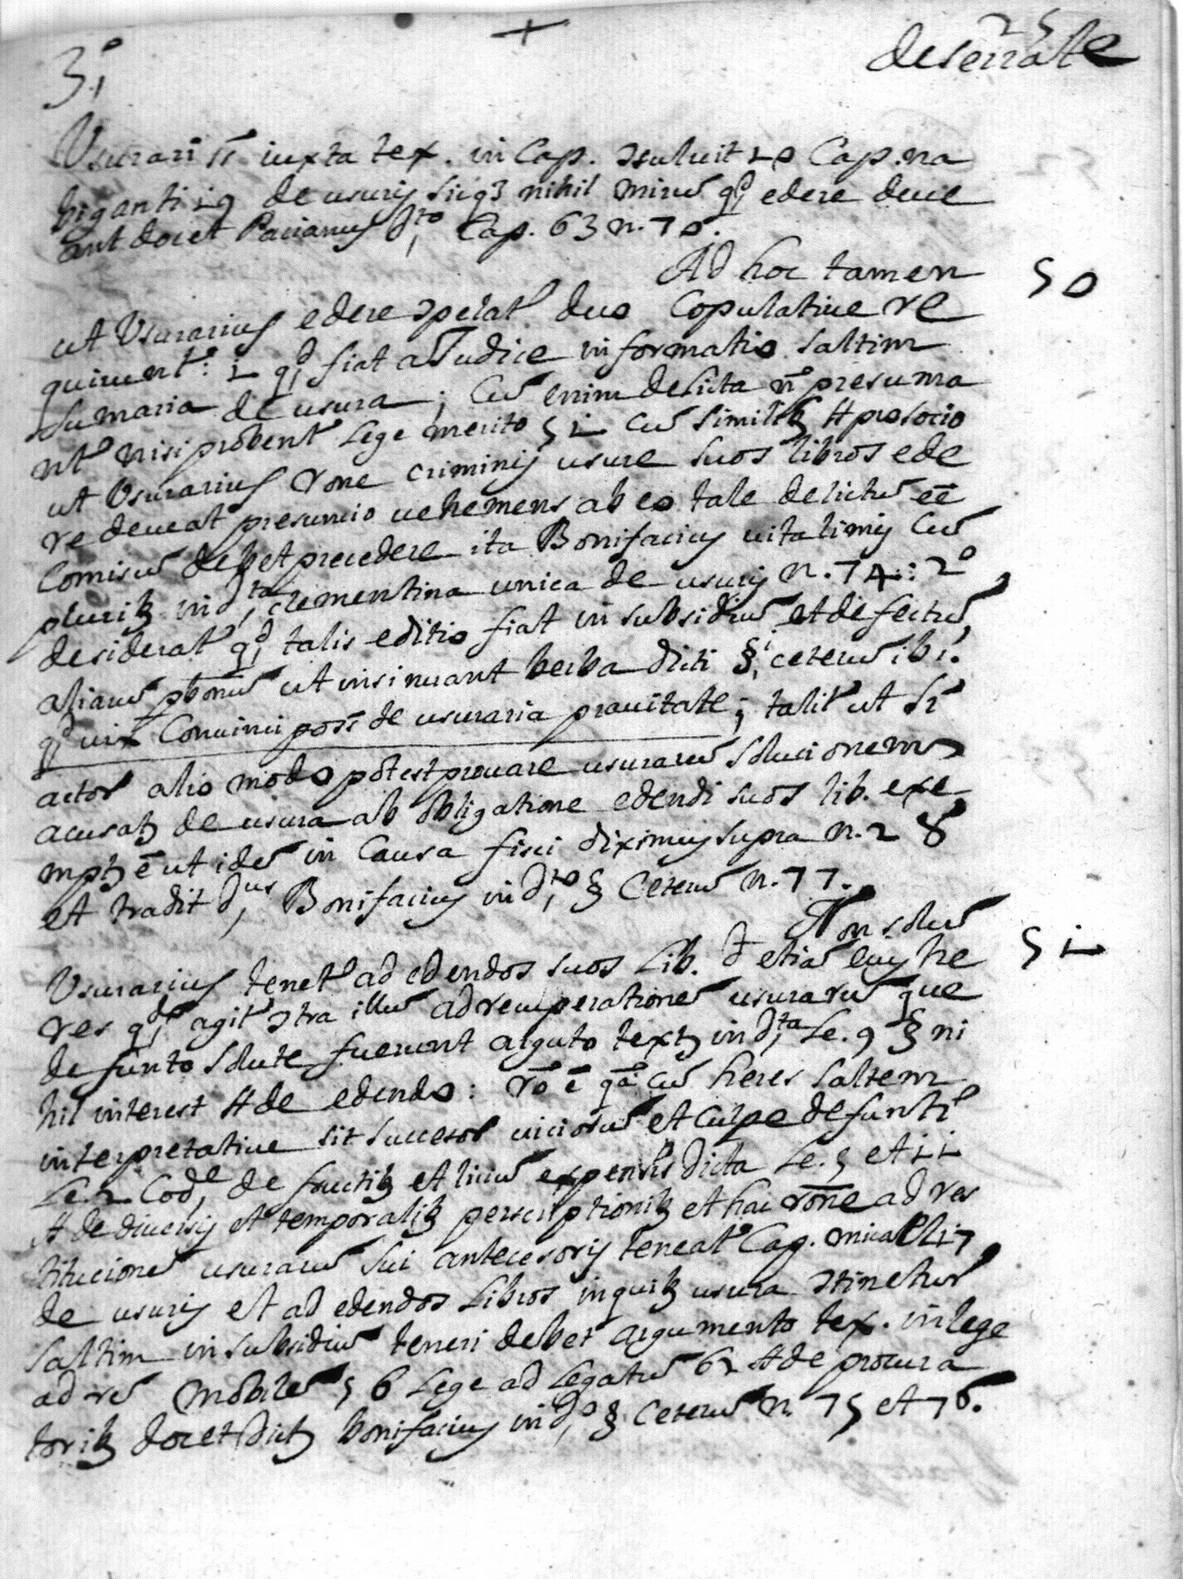 3.º
25
deserrate
Usurarii SS iuxta tex. in Cap. Consuluit 10 Cap. na
biganti 19 de usuris sicq3 nihil mirũ qd edere deue
ant docet Pacianus dto Cap. 63 n. 70.
Ad hoc tamen
50
ut Usurarius edere Conpelatr duo Copulatiue re
quiruntr: 1 qd fiat a Judice informatio saltim
sumaria de usura; Cũ enim delicta nõ presuma
ntr nisi probentr Lege merito 51 Cũ similib3 ff pro socio
ut Usurarius rõne criminis usure suos libros ede
re deueat presumcio uehemens ab eo tale delictũ eẽ
Comisũ debet precedere ita Bonifacius uitalinus Cũ
plurib3 in dta clementina unica de usuris n. 74: 2º
desideratr qd talis editio fiat in subsidiũ et defectũ,
aliarũ pbonũ ut insinuant berba dicti § ceterũ ibi.
qd uix Conuinci poss de usuraria prauitate; talitr ut si
actor alio modo potest prouare usurarũ solucionem
acusat9 de usura ab obligatione edendi suos lib. exe
mpt9 ẽ ut idẽ in Causa fisci diximus supra n. 28
et tradit dus Bonifacius in dto § Ceterũ n. 77.
Non solũ
51
Usurarius tenetr ad edendos suos Lib. sd etiã eius he
res qdo agitr Contra illũ ad recuperationẽ usurarũ que
defunto solute fuerunt arguto text9 in dta Le. 9 § ni
hil interest ff de edendo: rõ ẽ qa cũ heres saltem
interpretatiue sit succesor uiciorũ et Culpe defunti
Le. 2 Code de fructib3 et liciũ expensis dicta Le. 5 et 11
ff de diuersis et temporalib3 perscriptionib3 et hac rõne ad res
titucionẽ usurarũ sui antecesoris teneatr Cap. michli 7,
de usuris et ad edendos Libros in quib3 usura Continetur
saltim in subsidiũ teneri debet argumento tex. in lege
ad rẽ mobilẽ 56 Lege ad Legatũ 62 ff de procura
torib3 docet dict9 bonifacius in dto § Ceterũ n. 75 et 76.